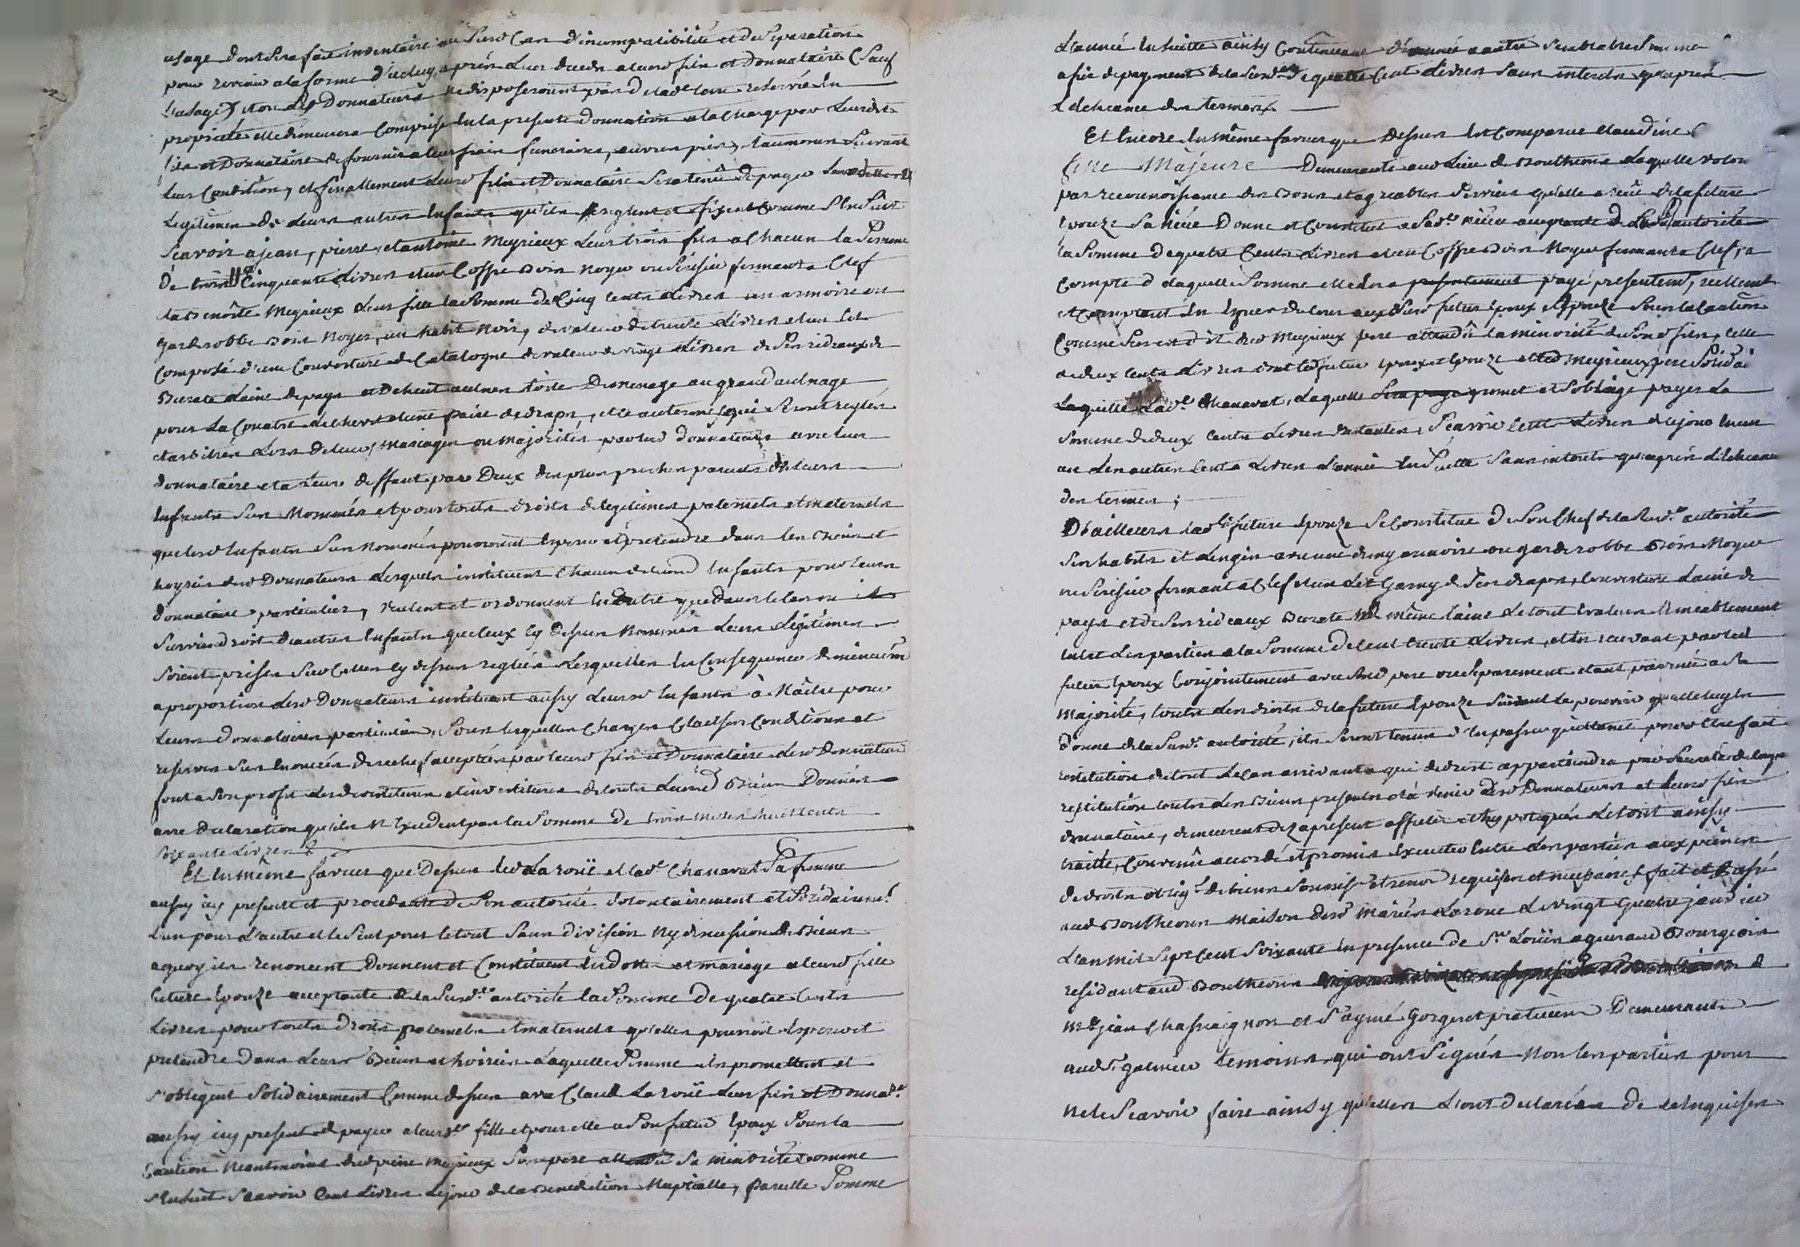 usage dont sera fait inventaire au Susd Cas d'incompatibilité et de Separation
pour revenir a la forme d'icelluy apres Leur deceds a leurd fils et donnataire (Sauf
L'usage) et ou Lesd Donnateurs ne disposeroient pas de lad reservée en
propriété elle demeurera Comprise en la presente donnation a la charge par Leurdit
fils et Donnataire de fournir a leur frais funeraires, œuvres pies, et aumones Suivant
Leur Condition, et finallement Leurd fils et Donnataire Sera tenu de payer les
Legitimes de Leurs autres Enfants qu'ils reglent et fixent Comme S'Ensuit
Scavoir a jean, pierre, et antoine Meyrieux Leurs trois fils a chacun la Somme
de trois Cent Cinquante Livres et un Coffre bois noyer ou Serisier fermant a Clef
et a benoite Meyrieux Leur fille la Somme de Cinq Cents Livres un armoire ou
garderobbe bois Noyer, un habit Noir, de valeur de trente Livres et un Lit
Composé d'une Couverture de Catalogne de valeur de vingt Livres de Ses rideaux de
Burate Laine de pays et de huit aulnes toile de menage au grand aulnage
pour La Couatre de chevet et une paire de draps, et le au terme qui Seront reglés
et arbitrés Lors de leurs Mariages ou majorités par leurs donnateurs avec leur
donnataire et a Leur deffaut par Deux des plus proches parents de Leurs
Enfants Sus Nommés et pour touts droits de legitimes paternels et maternels
que Lesd Enfants Sus nommés pourroient Esperer et pretendre dans les Biens et
hoyries desd Donnateurs Lesquels instituent Chacun de leursd Enfants pour leurs
donnataire particulier, veulent et ordonnent En outre que dans le Cas ou il
Surviendroit d'autres Enfants que Ceux Cy dessus Nommés Leurs Legitimes
Soient prises Sur Celles Cy dessus reglées Lesquelles En Consequence diminueront
a proportion Lesd Donnateurs instituant aussy Leursd Enfants à Naitre pour
Leurs donnataires particuliers, Sous Lesquelles Charges Clauses Conditions et
reserves Sus Enoncées derechef acceptées par leurd fils et Donnataire Lesd Donnateurs
font a Son profit Les devestitures et investitures de touts Leursd Biens Donnés
avec declaration qu'ils N'Excedent pas la Somme de trois mille huit Cents
Soixante Livres
Et En même faveur que Dessus led Laroüe et lad Chanavat Sa femme
aussy icy presente et procedante de Son autorité Volontairement et Solidairemt
L'un pour L'autre et le Seul pour le tout Sans division Ny discussion de Biens
a quoy ils renoncent Donnent et Constituent En dotte et mariage a leurd fille
future Epouze acceptante de la Susd autorité la Somme de quatre Cents
Livres pour touts Droits paternels et maternels qu'elle pourroit Esperer et
pretendre dans Leursd Biens et hoiries Laquelle Somme ils promettent et
S'obligent Solidairement Comme dessus avec Claud Laroüe Leur fils et Donnare
aussy icy present de payer a leurd fille et pour elle a Son futur Epoux Sous la
Caution Neantmoins dud pierre Meyrieux Son pere attendu Sa minorité Comme
S'Ensuit Scavoir Cent Livres Le jour de la Benediction Nuptialle, pareille Somme
L'année En Suitte ainsy Continuant D'année a autre Semblable Somme
a fin de payement de la Susd de quatre Cent Livres Sans interets qu'après
L'echeance des termes
Et Encore En même faveur que Dessus Est Comparue Claudine
fille Majeure Demeurante aud Lieu de Bouthéon Laquelle volon
par reconnoissance des Bons et agreables Services qu'elle a reçu de la future
Epouze Sa Niéce Donne et Constitue a Sad Niéce acceptante de lad autorité
la Somme de quatre Cents Livres et un Coffre bois Noyer fermant a Clef, a
Compte de Laquelle Somme elle en a payé presentemt, reellement
et Comptant En Especes de Cours auxd futurs Epoux et Epouze Sous la Caution
Comme Sus est dit dud Meyrieux pere attendu la minorité de Sond fils, Celle
de deux Cents Livres dont led futur Epoux et Epouze et led Meyrieux pere Solidai
Lad Chanavat, Laquelle promet et S'oblige payer La
Somme de deux Cents Livres restantes, Scavoir Cent Livres de ce jour en un
an Les autres Cents Livres L'année En Suitte Sans interets qu'après L'echeance
des termes;
D'ailleurs lad future Epouze Se Constitue de Son Chef de la Susd autorité
Ses habits et Linges avec une demy armoire ou garderobbe Bois Noyer
ou Serisier fermant a Clef et un Lit Garny de Ses draps, Couverture Laine de
pays et de Ses rideaux Burate de même Laine Le tout Evalué Amiablement
Entre Les parties a la Somme de Cent trente Livres, et En recevant par led
futur Epoux Conjointement avec Sond pere ou Separement etant parvenu a Sa
Majorité, touts Les droits de la future Epouze Suivant le pouvoir qu'elle luy En
donne de la Susd autorité, ils Seront tenus d'En passer quittance pour Etre fait
restitution du tout Le Cas arrivant a qui de droit appartiendra pour Seureté de laque
restitution touts Les Biens presents et a venir desd Donnateurs et leurd fils
donnataire, demeurent dez a present affectés et hypotequés Le tout ainsy
traitté, Convenu accordé et promis Executer Entre Les parties aux peines
de droits oblign de biens Soumisn et renonn requises et necessaires fait et Passé
aud Bouthéon Maison desd Mariés Laroüe Le vingt quatre janvier
L'an mil Sept Cent Soixante En presence de Sr Loüis aguiraud Bourgeois
residant aud Bouthéon de
Me jean Chassaignon et S'aymé Gorgeret praticien Demeurants
aud St galmier temoins qui ont Signés Non les parties pour
ne le Scavoir faire ainsy qu'elles L'ont declarées de ce Enquises